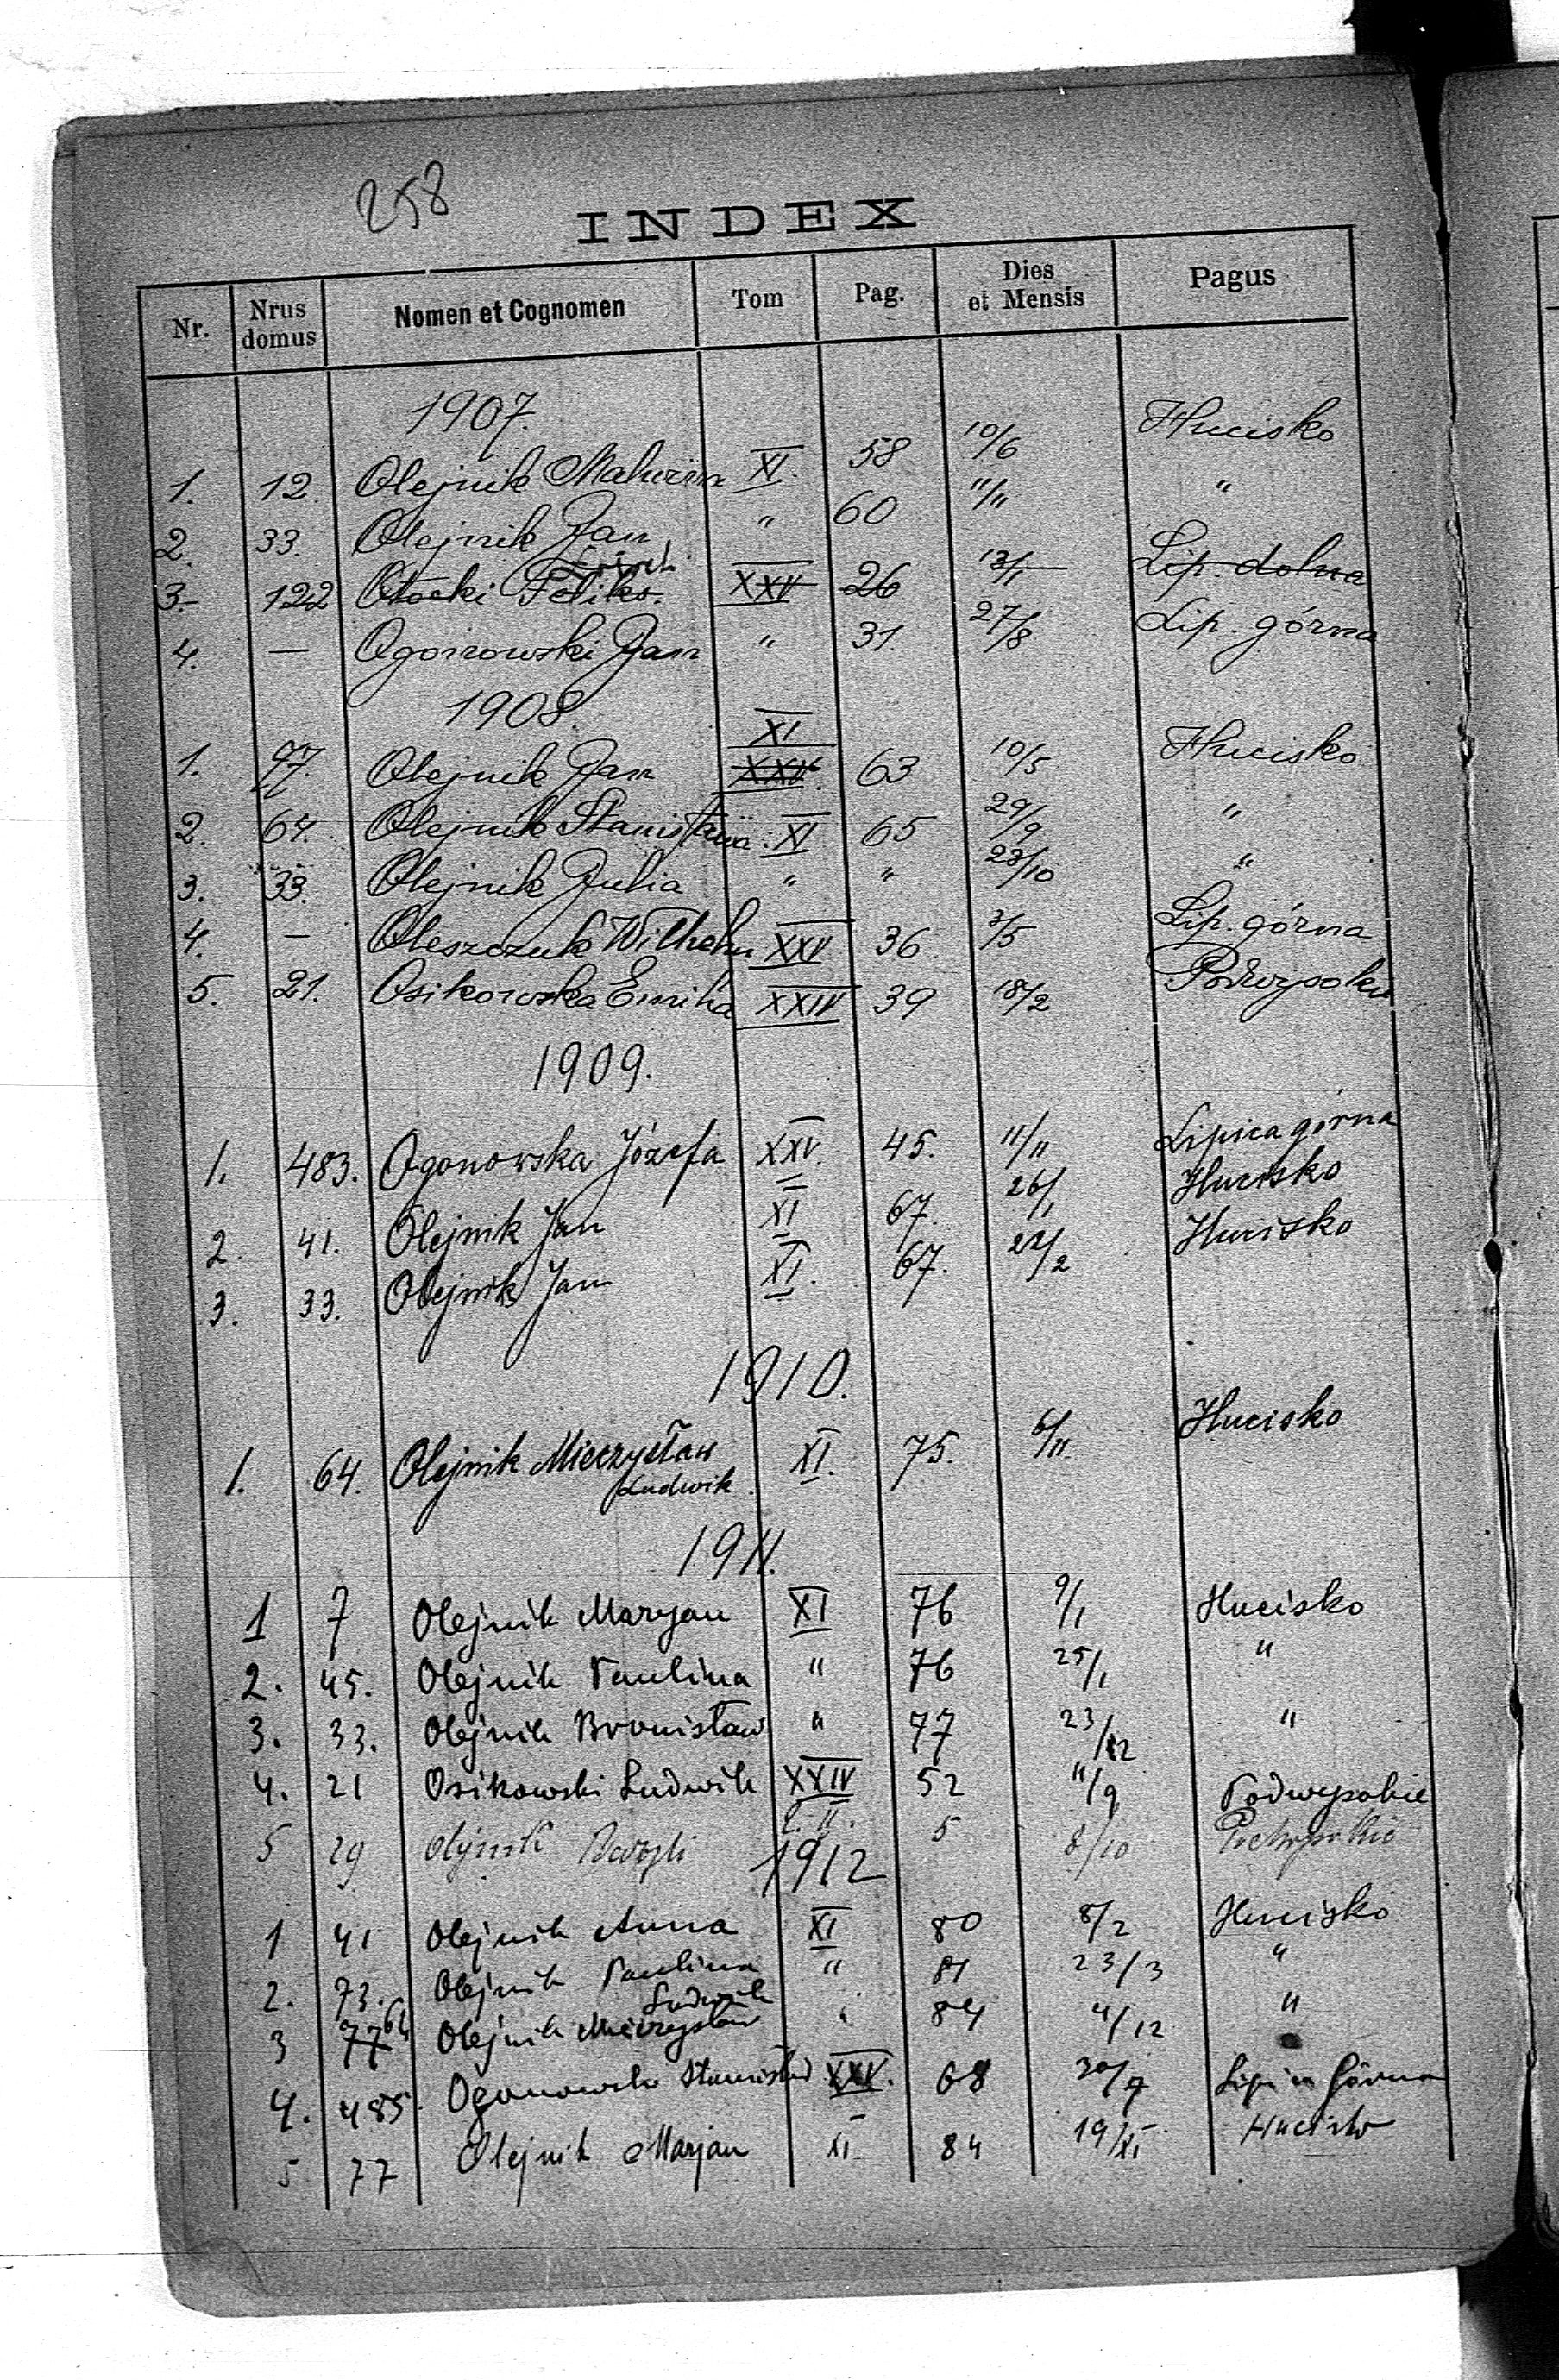 258
INDEX
Nr. Nrus domus Nomen et Cognomen Tom Pag. Dies et Mensis Pagus
1907.
1. 12. Olejnik XI. 58 10/6 Hucisko
2. 33. Olejnik Jan " 60 11/11 "
3. 122 Otocki Feliks. XXV 26 13/1 Lip. dolna
4. — Ogonowski Jan " 31. 27/8 Lip. górna
1908.
XI
1. 77. Olejnik Jan XXV. 63 10/5 Hucisko
2. 64. Olejnik XI 65 29/9 "
3. 33. Olejnik Julia " " 23/10 "
4. — Oleszczuk Wilhelm XXV 36. 3/5 Lip. górna
5. 21. Osikowska Emilia XXIV 39 18/2 Podwysokie
1909.
1. 483. Ogonowska Józefa XXV. 45. 11/11 Lipica górna
2. 41. Olejnik Jan XI 67. 26/1 Hucisko
3. 33. Olejnik Jan XI. 67. 22/2 Hucisko
1910.
1. 64. Olejnik Mieczysław XI. 75. 6/11. Hucisko
Ludwik
1911.
1 7 Olejnik Maryan XI 76 9/1 Hucisko
2. 45. Olejnik Paulina " 76 25/1 "
3. 33. Olejnik Bronisław " 77 23/12 "
4. 21 Osikowski Ludwik XXIV 52 11/9 Podwysokie
5 29 Olejnik 5 8/10 Podwysokie
1912
1 41 Olejnik Anna XI 80 8/2 Hucisko
2. 73. Olejnik Paulina " 81 23/3 "
Ludwik
3 77 64 Olejnik Mieczysław " 84 4/12 "
4. 485. Ogonowski XXV. 68 30/7 Lipica Górna
5 77 Olejnik Marjan XI 84 19/XI Hucisko